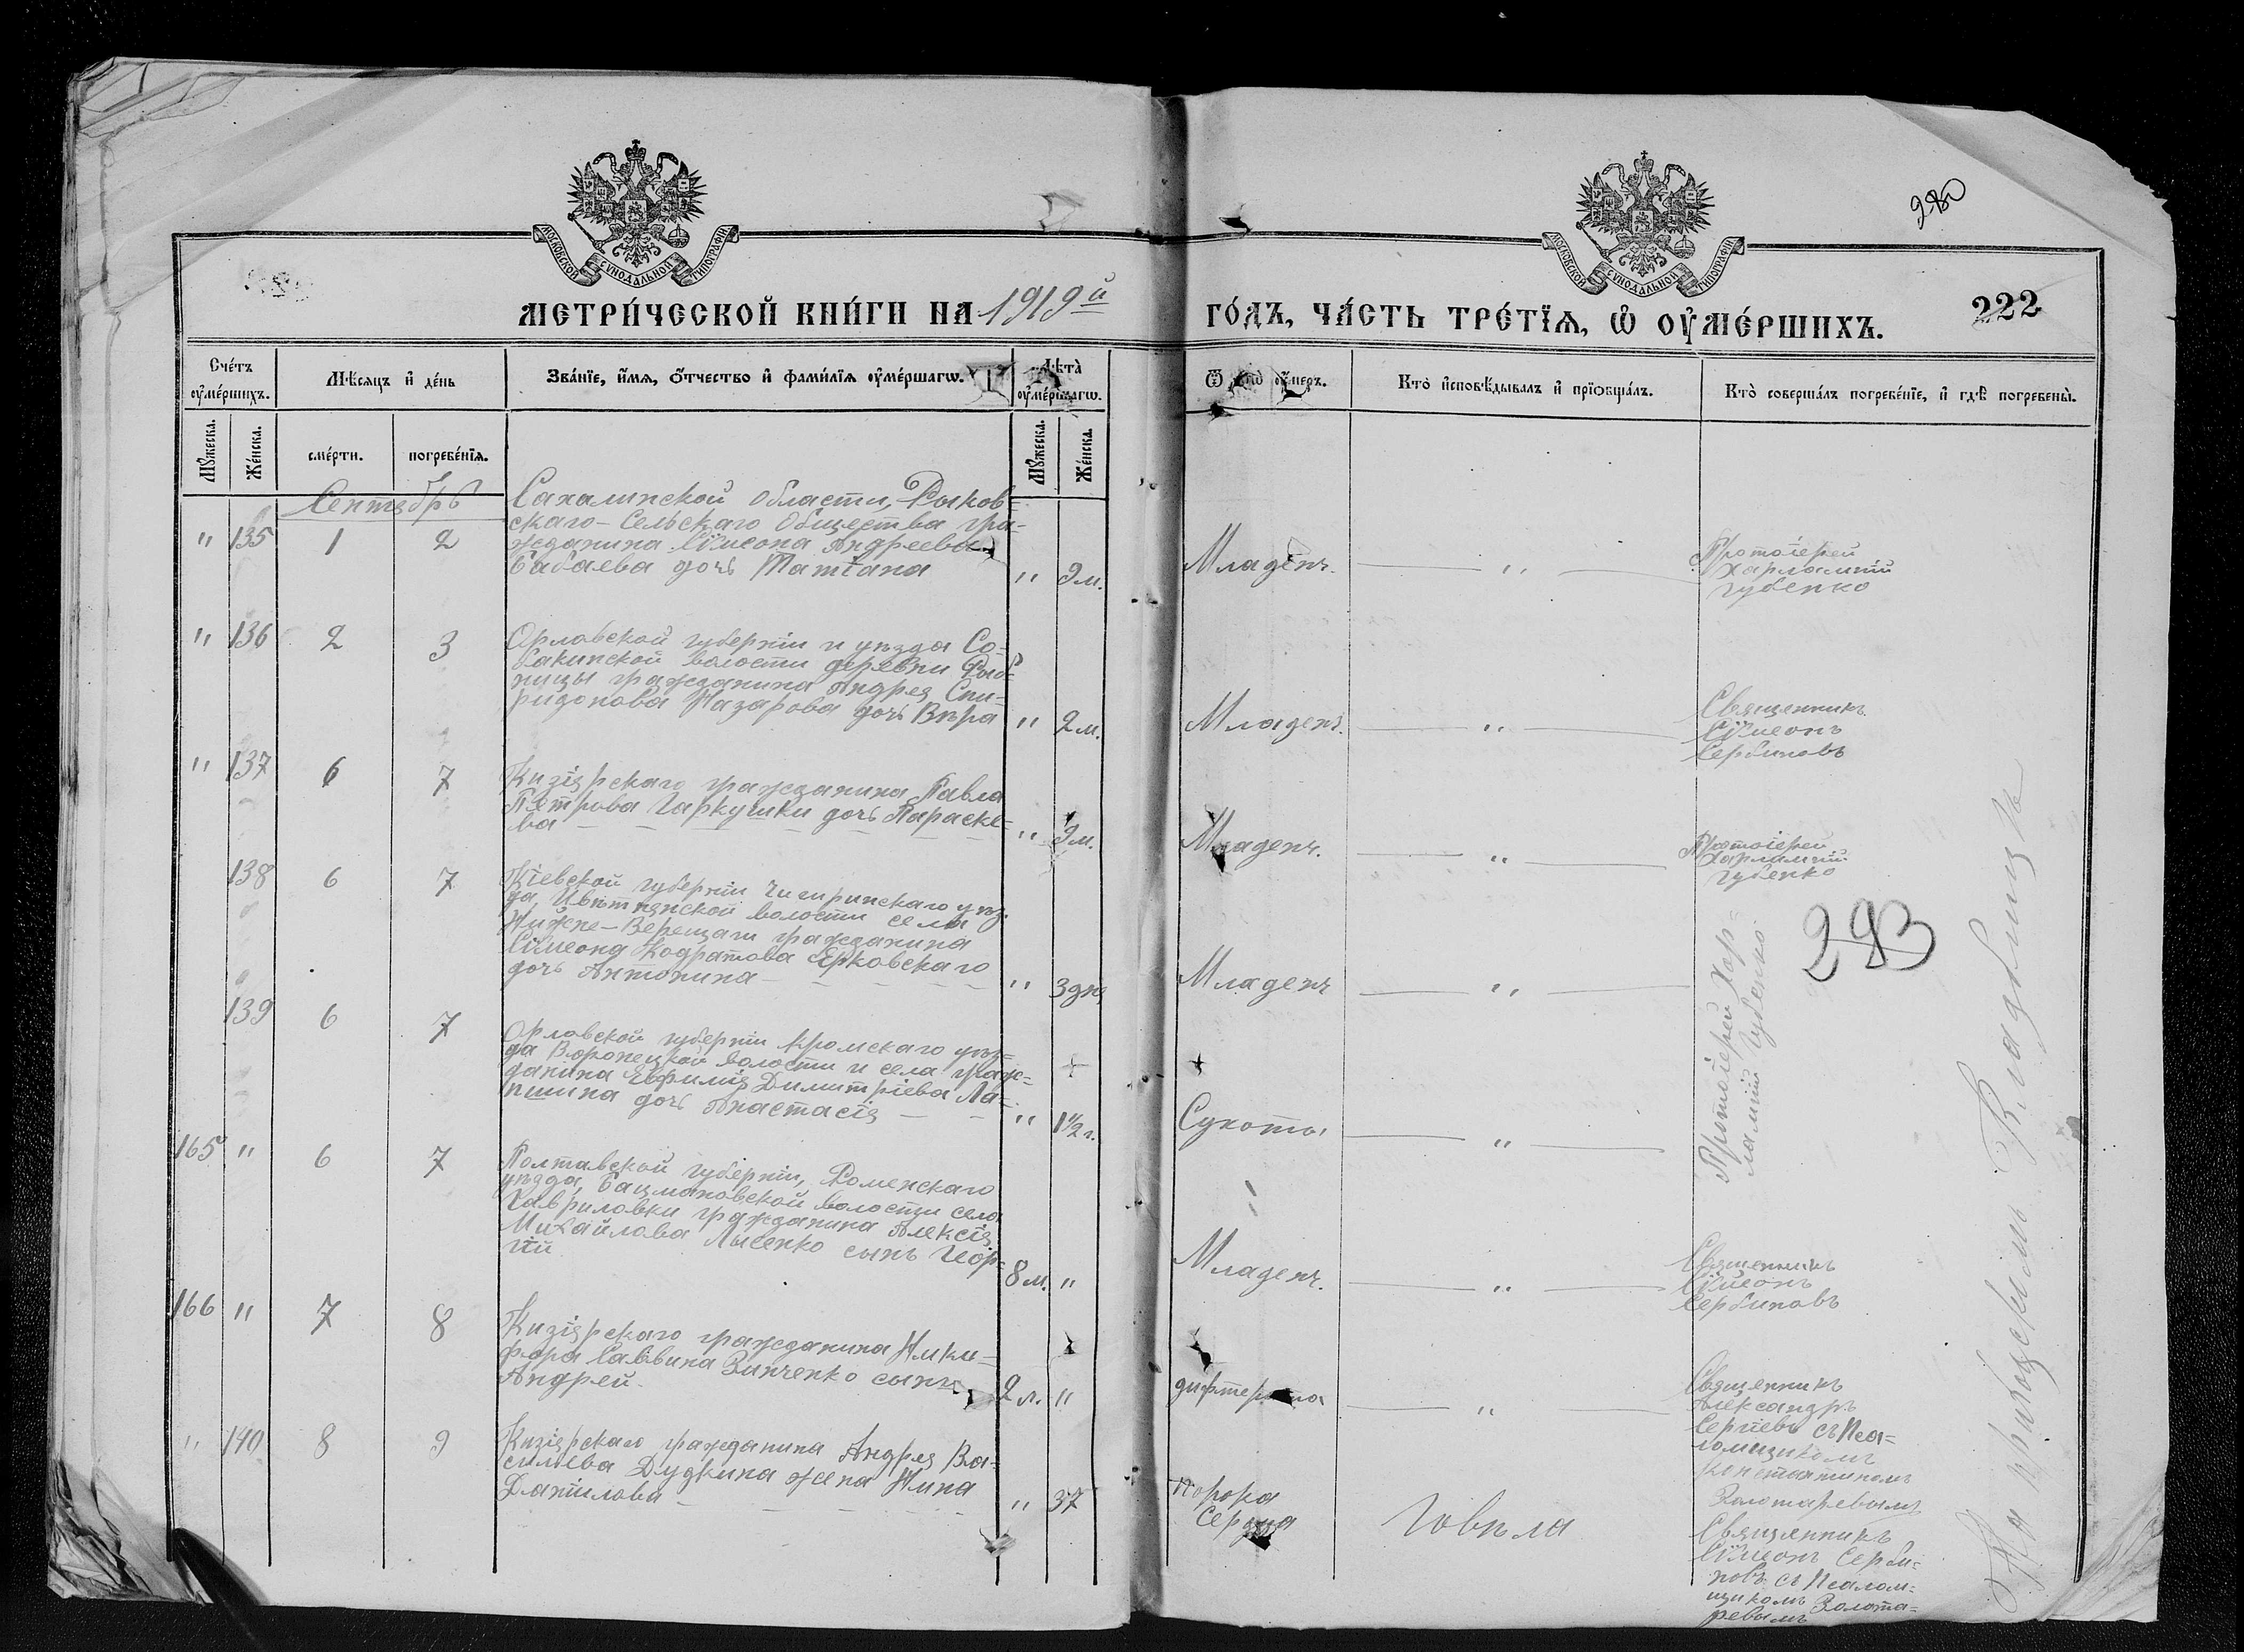 МОСКОВСКОЙ СѴНОДАЛЬНОЙ ТИПОГРАФІИ
МОСКОВСКОЙ СѴНОДАЛЬНОЙ ТИПОГРАФІИ
280
МЕТРИ́ЧЕСКОЙ КНИ́ГИ НА 1919й
ГО́ДЪ, ЧА́СТЬ ТРЕ́ТЇѦ, Ѡ҆ ОУ҆МЕ́РШИХЪ.
222
Сче́тъ оу҆ме́ршихъ.
Мѣ́сяцъ и҆ де́нь
Зва́нїе, и҆́мя, ѻ҆́тчество и҆ фами́лїя оу҆ме́ршагѡ.
Лѣ́та̀ оу҆ме́ршагѡ.
Ѿ оу҆́меръ.
Кто̀ и҆сповѣ́дывалъ и҆ прїѡбща́лъ.
Кто̀ соверша́лъ погребе́нїе, и҆ гдѣ̀ погребены̀.
Мꙋ́жеска.
Же́нска.
сме́рти.
погребе́нїя.
Мꙋ́жеска.
Же́нска.
Сентябрь
" 135 1 2
Сахалинской области, Рыков=
скаго-Сельскаго Общества гра=
жданина Сѵмеона Андреева
Бабаева дочь Татіана
" 9 м.
Младенч. "
Протоіерей
Харлампій
Губенко
" 136 2 3
Орловской губерніи и уѣзда Со=
бакинской волости деревни Рыб=
ницы гражданина Андрея Спи=
ридонова Назарова дочь Вѣра
" 2 м.
Младенч. "
Священникъ
Сѵмеонъ
Сербиновъ
" 137 6 7
Кизіярскаго гражданина Павла
Петрова Гаркушки дочь Параске=
ва
" 9 м.
Младенч. "
Протоіерей
Харлампій
Губенко
138 6 7
Кіевской губерніи Чигиринскаго уѣз=
да, Цвѣтнянской волости села
Нижне-Верещаги гражданина
Сѵмеона Кодратова Ерковскаго
дочь Антонина
" 3 дня
Младенч "
Протоіерей Хар=
лампій Губенко.
293
139 6 7
Орловской губерніи Кромскаго уѣз=
да Воронецкой волости и села граж=
данина Евфимія Димитріева Ла=
пшина дочь Анастасія
" 1 1/2 г.
Сухоты "
165 " 6 7
Полтавской губерніи, Роменскаго
уѣзда, Бацмановской волости села
Гавриловки гражданина Алексія
Михайлова Лысенко сынъ Геор=
гій
8 м. "
Младенч. "
Священникъ
Сѵмеонъ
Сербиновъ
166 " 7 8
Кизіярскаго гражданина Ники=
фора Саввина Зинченко сынъ
Андрей
2 л. "
"
Священникъ
Александръ
Сергіевъ съ Пса=
ломщикомъ
Константиномъ
Золотаревымъ
" 140 8 9
Кизіярскаго гражданина Андрея Ва=
сильева Дудкина жена Нина
Данилова
" 37
порока
Сердца
Говѣла
Священникъ
Сѵмеонъ Серби=
новъ съ Псалом=
щикомъ Золота=
ревымъ
На приходскомъ кладбищѣ